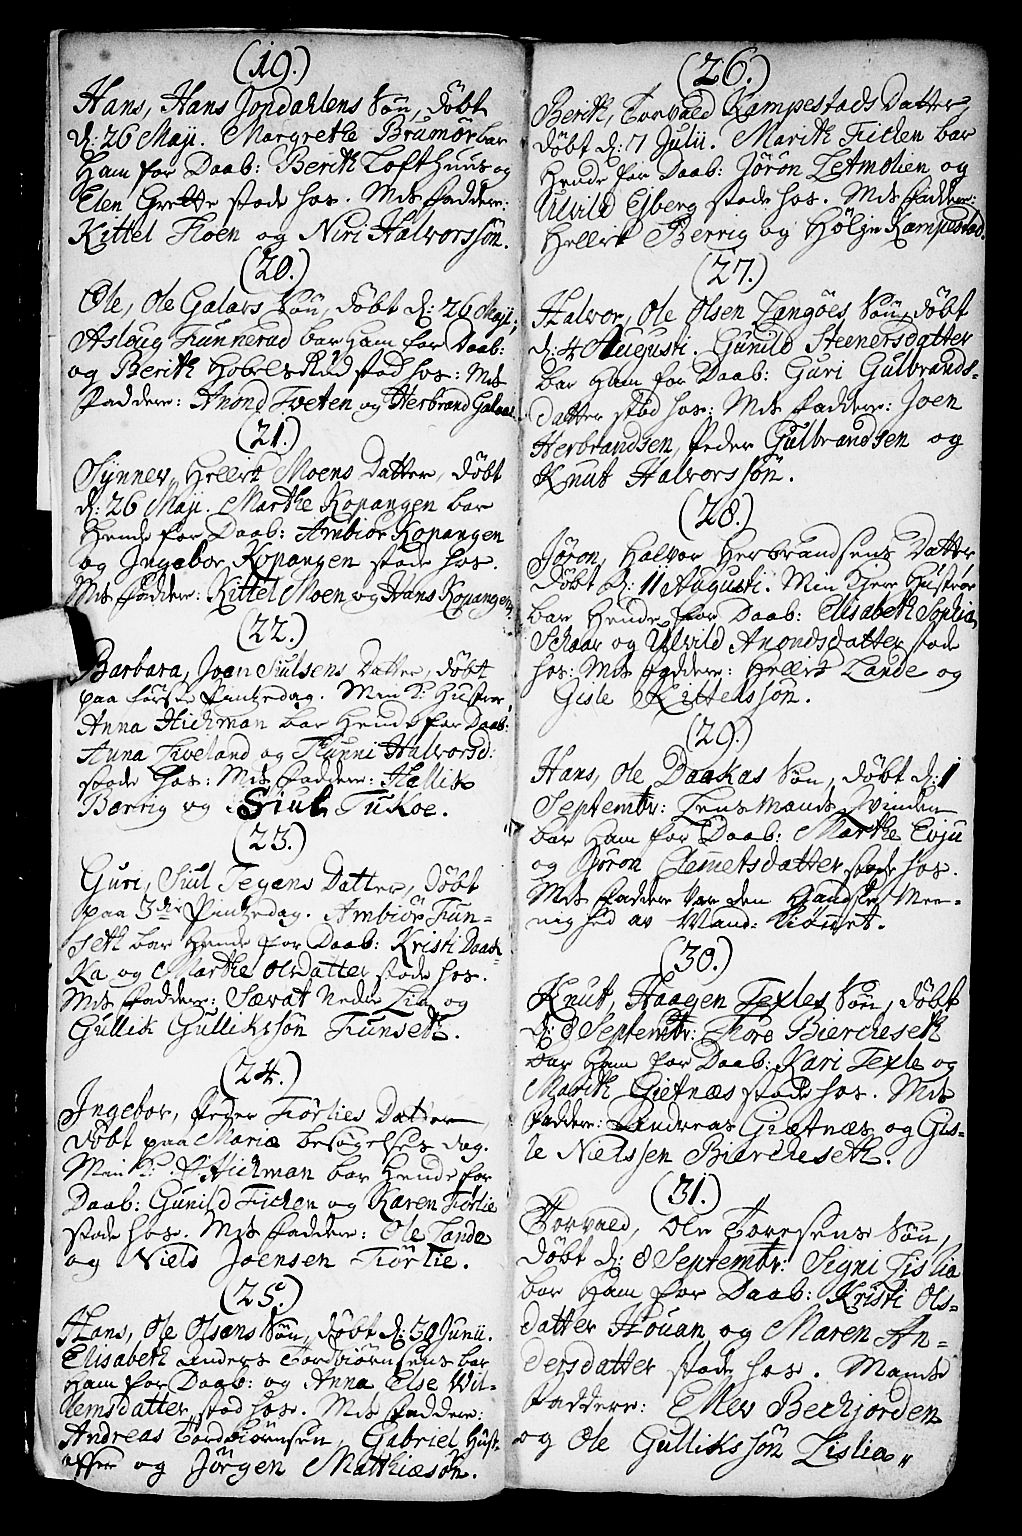 (19.)
Hans, Hans Jondahlens Søn, døbt
d: 26 Maji. Margrethe Brumør bar
Ham for Daab: Berith Lofthuus og
Elen Grette stode hos. Mds faddere:
Kittel Floen og Niri Halvorssøn.
(20.)
Ole, Ole Galaas Søn, døbt d: 26 Maji,
Aslaug Funnerud bar Ham for Daab:
og Berith Hobelsrud stod hos: Mds
Faddere: Anond Tveten og Herbrand Galaas
(21.)
Synnev, Hellerk Moens Datter, døbt
d: 26 Maji. Marthe Kopangen bar
Hende for Daab: Ambiør Kopangen
og Ingebor Kopangen stode hos.
Mds faddere: Kittel Moen og Hans Kopangen
(22.)
Barbara, Joen Siulsens Datter, døbt
paa første Pintzedag. Min K: Hustrue
Anna Hichman bar Hende for Daab:
Anna Liveland og Gunni Halvorsd:
stode hos: Mds faddere: Hellik
Berrig og Siul Tukoe.
(23.)
Guri, Siul Tegans Datter, døbt
paa 3die Pintzedag. Ambiør Fun-
seth bar Hende for Daab: Kristi Daas-
ka og Marthe Olsdatter stode hos.
Mds faddere: Sævat Nedre Lia og
Gullik Gullikssøn Funseth.
(24.)
Ingebor, Peder Førlies Datter
døbt paa Mariæ besøgelses dag.
Min K: H: Hichman bar Hende for
Daab: Gunild Fichen og Karen Førlie
stode hos. Mds faddere: Ole Lande
og Niels Joensen Førlie.
(25.)
Hans, Ole Olsens Søn, døbt d: 30 Junii.
Elisabeth Anders Tordbiørnsens bar
Ham for Daab: og Anna Else Wil-
lemsdatter stod hos. Mds faddere:
Andreas Tordbiørnsen, Gabriel Hust-
offer og Jörgen Matthiæsøn.
(26.)
Berith, Torvald Kampestads Datter
døbt d: 7 Julii. Marith Fichen bar
Hende for Daab: Jørøn Letmolien og
Ulvild Ejberg stode hos. Mds faddere:
Hellerk Berrig og Hölje Kampestad.
(27.)
Halvor, Ole Olsen Langöes Søn, døbt
d: 4 Augusti. Gunild Steenersdatter
bar Ham for Daab: Guri Gulbrands-
datter stod hos: Mds faddere: Joen
Herbrandsen, Peder Gulbrandsen og
Knut Halvorssøn.
(28.)
Jørøn, Halvor Herbrandsens Datter
Døbt d: 11 Augusti. Min kjere Hustrue
bar Hende for Daab: Elisabeth Sophia
Schaar og Ulvild Anondsdatter stode
hos: Mds faddere: Hellerk Lande og
Gisle Kittelssøn.
(29.)
Hans, Ole Daakas Søn, døbt d: 1
Septembr: Lensmands Qvinden
bar Ham for Daab: Marthe Evju
og Jøron Clemetsdatter stode hos.
Mds faddere var den gandske Mee-
nighed av Mand: kiønnet.
(30.)
Knut, Haagen Texles Søn, døbt
d: 8 Septembr: Thore Biercheseth
bar Ham for Daab: Kari Texle og
Marith Gietnæs stode hos. Mds
faddere: Andreas Giætnæs og Gis-
le Nielssen Biercheseth.
(31.)
Torvald, Ole Toresens Søn,
døbt d: 8 Septembr: Signi Lislia
bar Ham for Daab: Kristi Ols-
datter Houan og Maren An-
dersdatter stode hos. Mands
Faddere: Ellev Bechjorden
og Ole Gullikssøn Lislia.